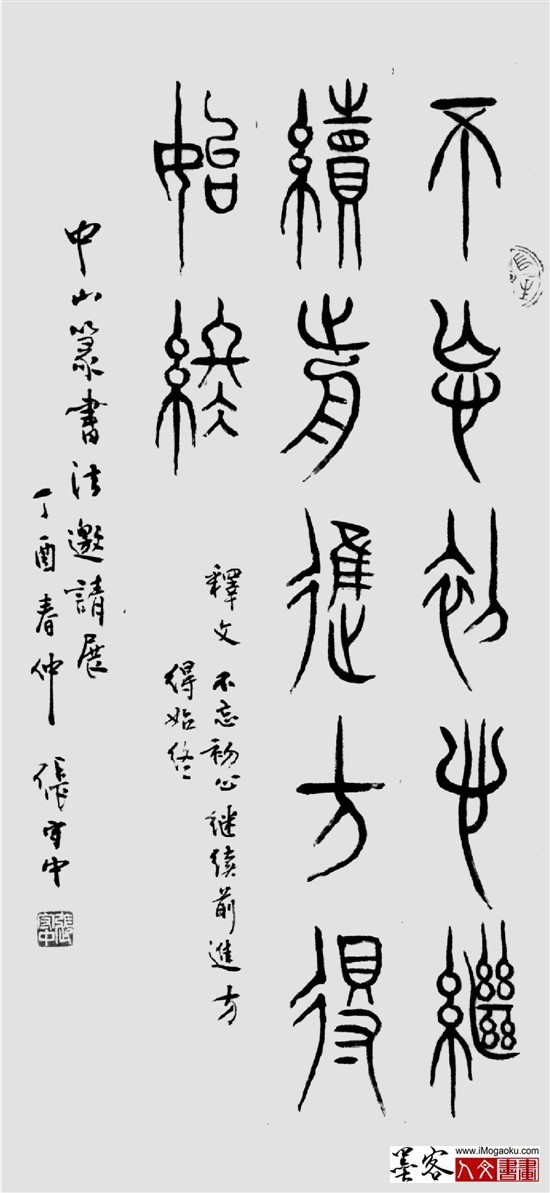 不忘初心繼
續前進方得
始終
釋文 不忘初心繼續前進方
得始終
中山篆書法邀請展
丁酉春仲 張守中
張守中
www.iMogaoku.com
墨客 人文書畫